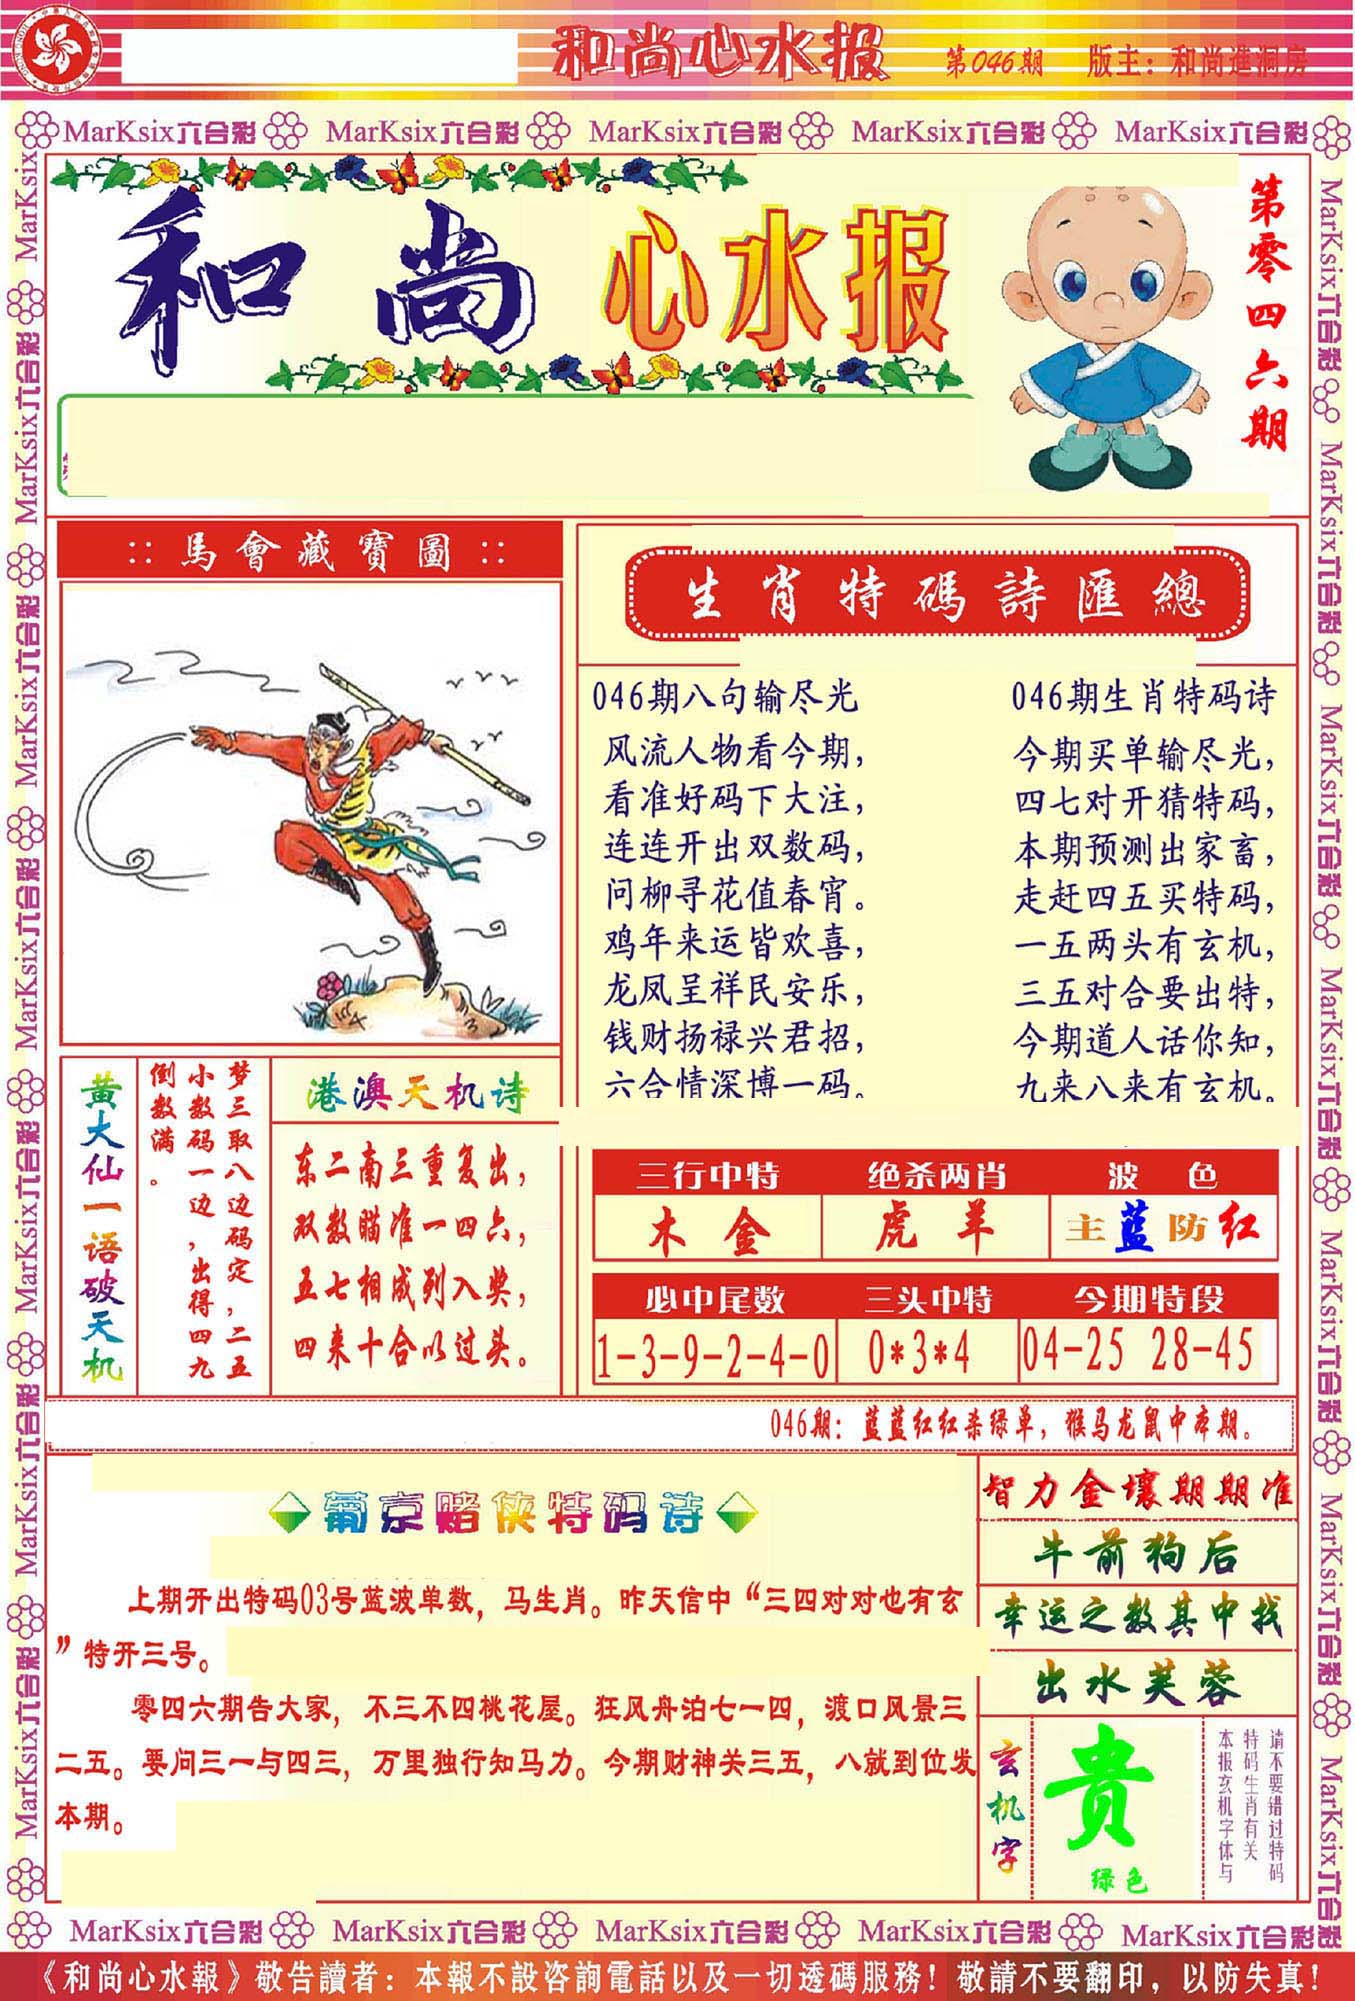 和尚心水报 第046期 版主：和尚進洞房
MarKsix六合彩 MarKsix六合彩 MarKsix六合彩 MarKsix六合彩 MarKsix六合彩
和尚心水报
第零四六期
::馬會藏寶圖::
生肖特碼詩匯總
046期八句输尽光
风流人物看今期，
看准好码下大注，
连连开出双数码，
问柳寻花值春宵。
鸡年来运皆欢喜，
龙凤呈祥民安乐，
钱财扬禄兴君招，
六合情深博一码。
046期生肖特码诗
今期买单输尽光，
四七对开猜特码，
本期预测出家畜，
走赶四五买特码，
一五两头有玄机，
三五对合要出特，
今期道人话你知，
九来八来有玄机。
黄大仙一语破天机
梦三取八边码定，二五
小数码一边，出得四九
倒数满。
港澳天机诗
东二南三重复出，
双数瞄准一四六，
五七相成列入奖，
四来十合以过头。
三行中特 绝杀两肖 波色
木金 虎羊 主蓝防红
必中尾数 三头中特 今期特段
1-3-9-2-4-0 0*3*4 04-25 28-45
046期：蓝蓝红红杀绿单，猴马龙鼠中本期。
葡京赌侠特码诗
上期开出特码03号蓝波单数，马生肖。昨天信中“三四对对也有玄
”特开三号。
零四六期告大家，不三不四桃花屋。狂风舟泊七一四，渡口风景三
二五。要问三一与四三，万里独行知马力。今期财神关三五，八就到位发
本期。
智力金壤期期准
牛前狗后
幸运之数其中找
出水芙蓉
玄机字
贵
绿色
请不要错过特码
特码生肖有关
本报玄机字体与
MarKsix六合彩 MarKsix六合彩 MarKsix六合彩 MarKsix六合彩 MarKsix六合彩
《和尚心水報》敬告讀者：本報不設咨詢電話以及一切透碼服務！敬請不要翻印，以防失真！